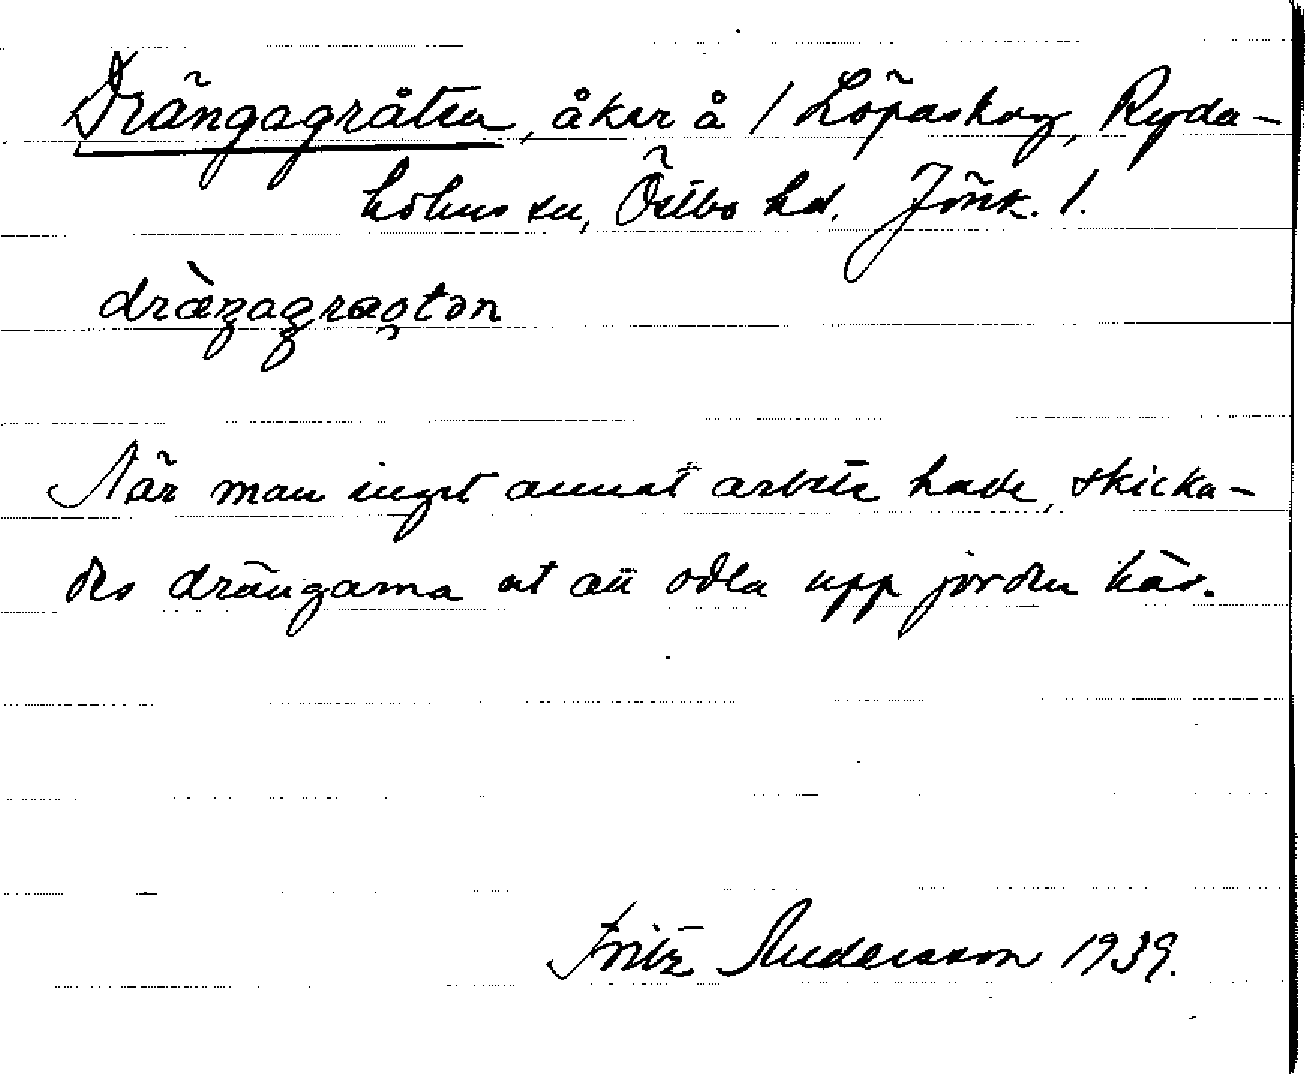 Drängagråten, åker å 1 Löpaskog, Ryda-
holms sn, Östbo hd. Jönk. l.
dræ̀ŋagrǫtən
När man inget annat arbete hade, skicka-
des drängarna ut att odla upp jorden här.
Fritz Andersson 1939.